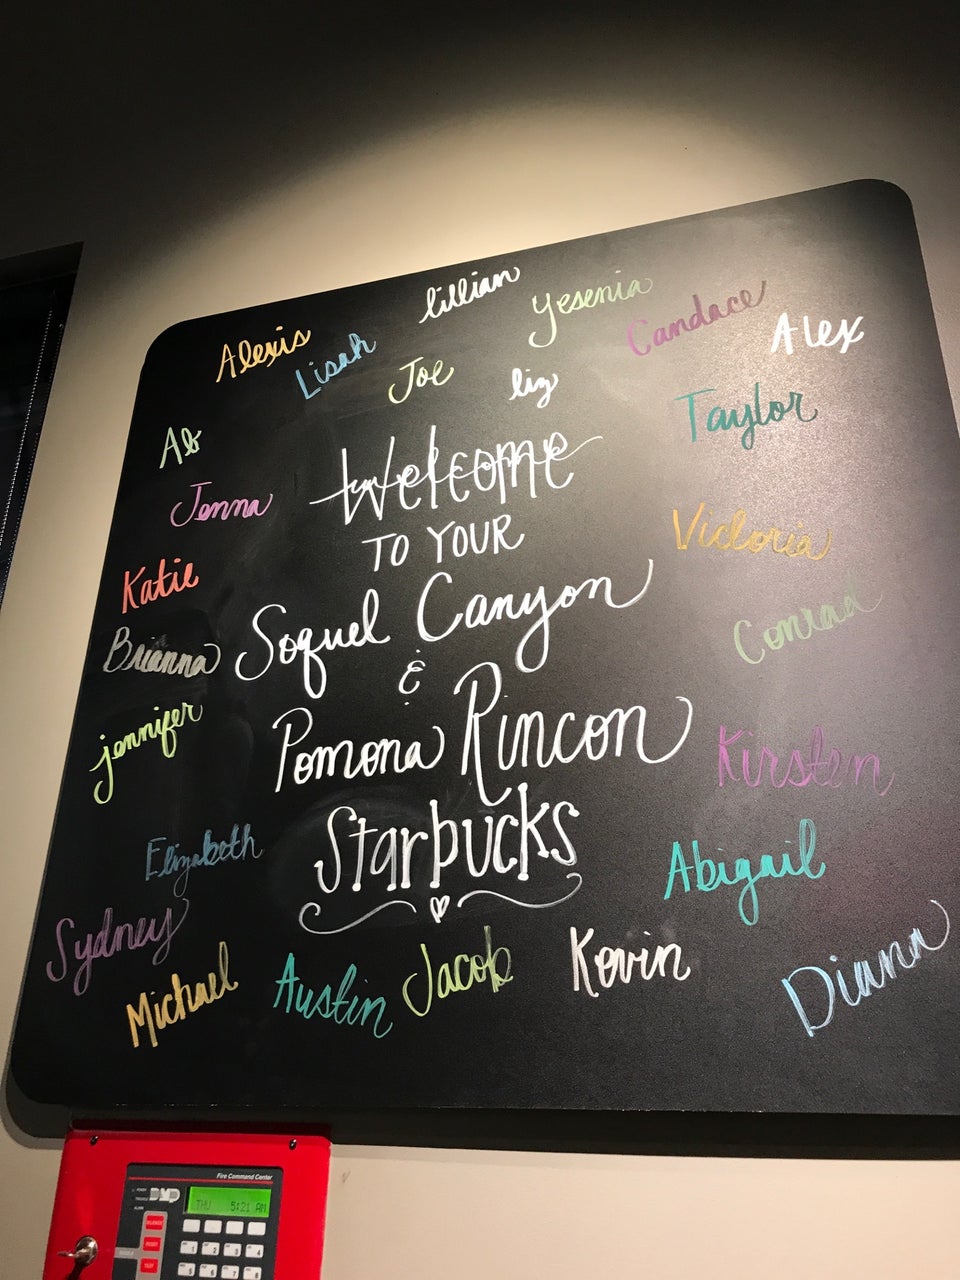 lillian
Yesenia
Candace
Alex
Alexis
Lisah
Joe
liz
Taylor
Ab
Welcome
Jenna
TO YOUR
Victoria
Katie
Soquel Canyon
Conrad
Brianna
&
jennifer
Pomona Rincon
Kirsten
Starbucks
Elizabeth
Abigail
Sydney
Michael
Austin
Jacob
Kevin
Diana
Fire Command Center
DMP
THU 5:21 AM